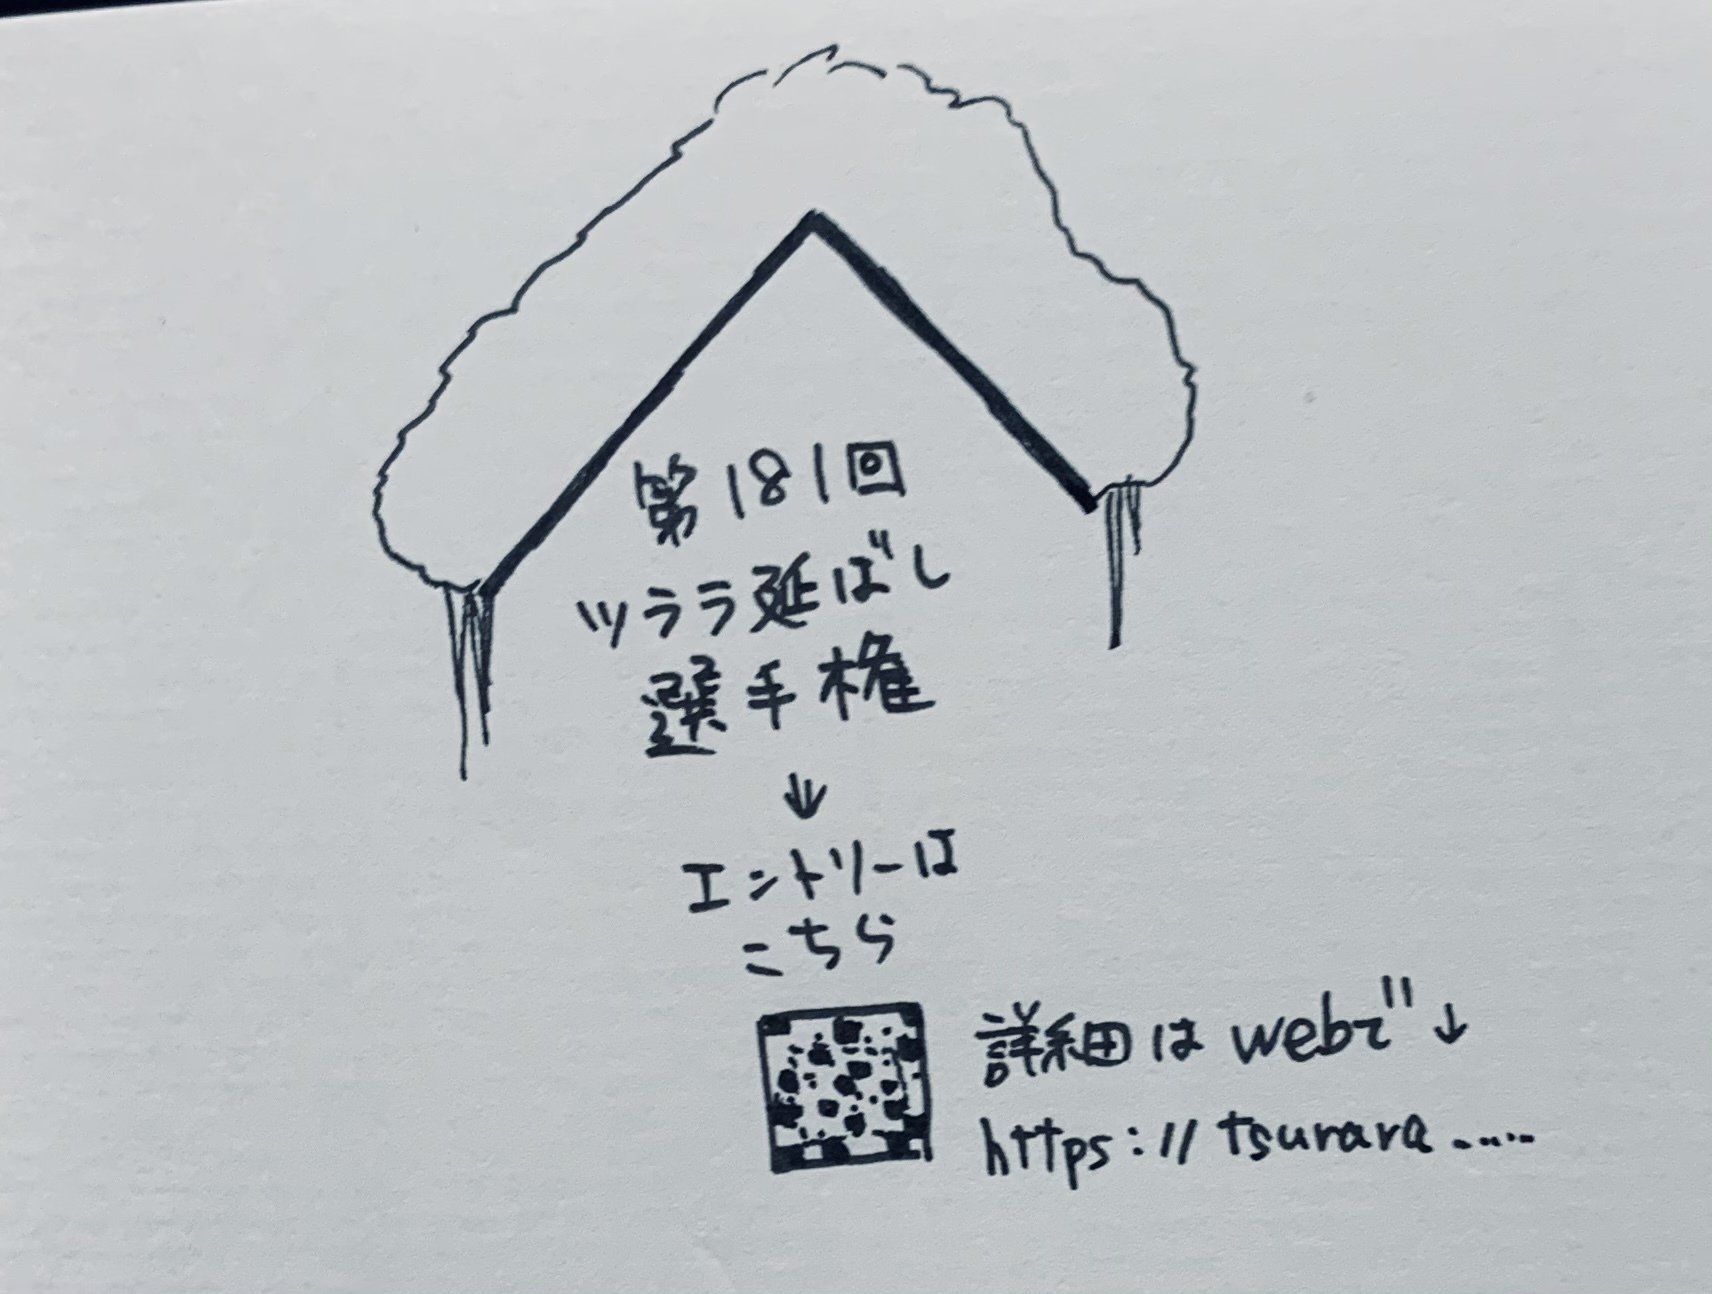 第181回
ツララ延ばし
選手権
↓
エントリーは
こちら
詳細はwebで↓
https://tsurara......